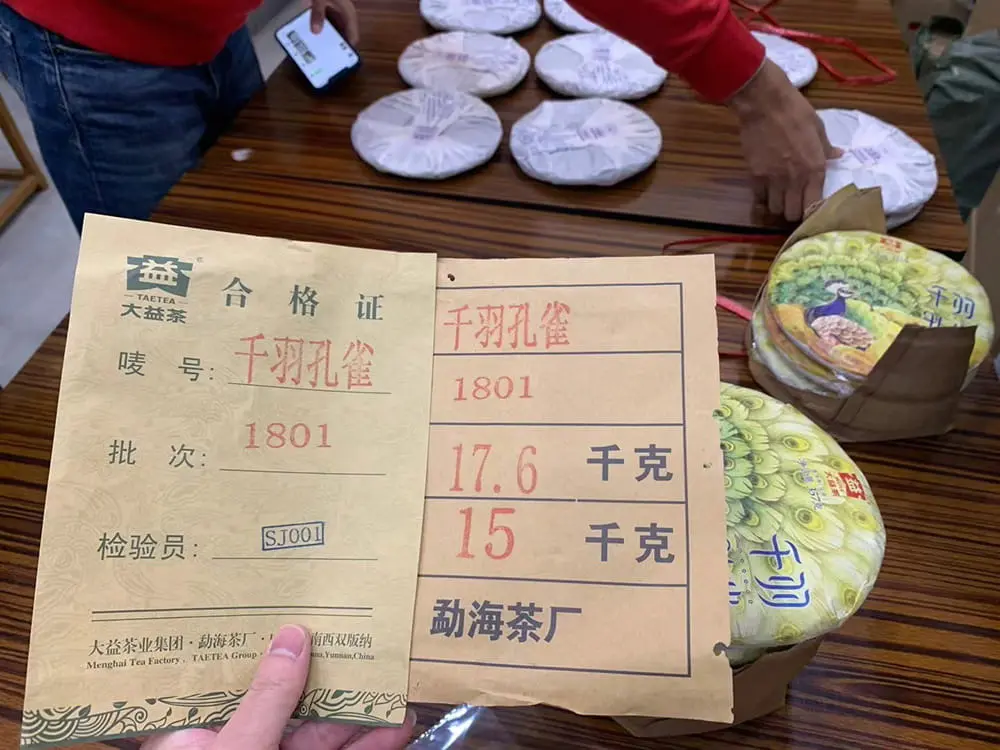 益
TAETEA
大益茶
合格证
唛号:千羽孔雀
批次:1801
检验员:SJ001
大益茶业集团·勐海茶厂·
南西双版纳
Menghai Tea Factory, TAETEA Group·
Yunnan,China
千羽孔雀
1801
17.6 千克
15 千克
勐海茶厂
千羽
益
大益茶
357g
千羽